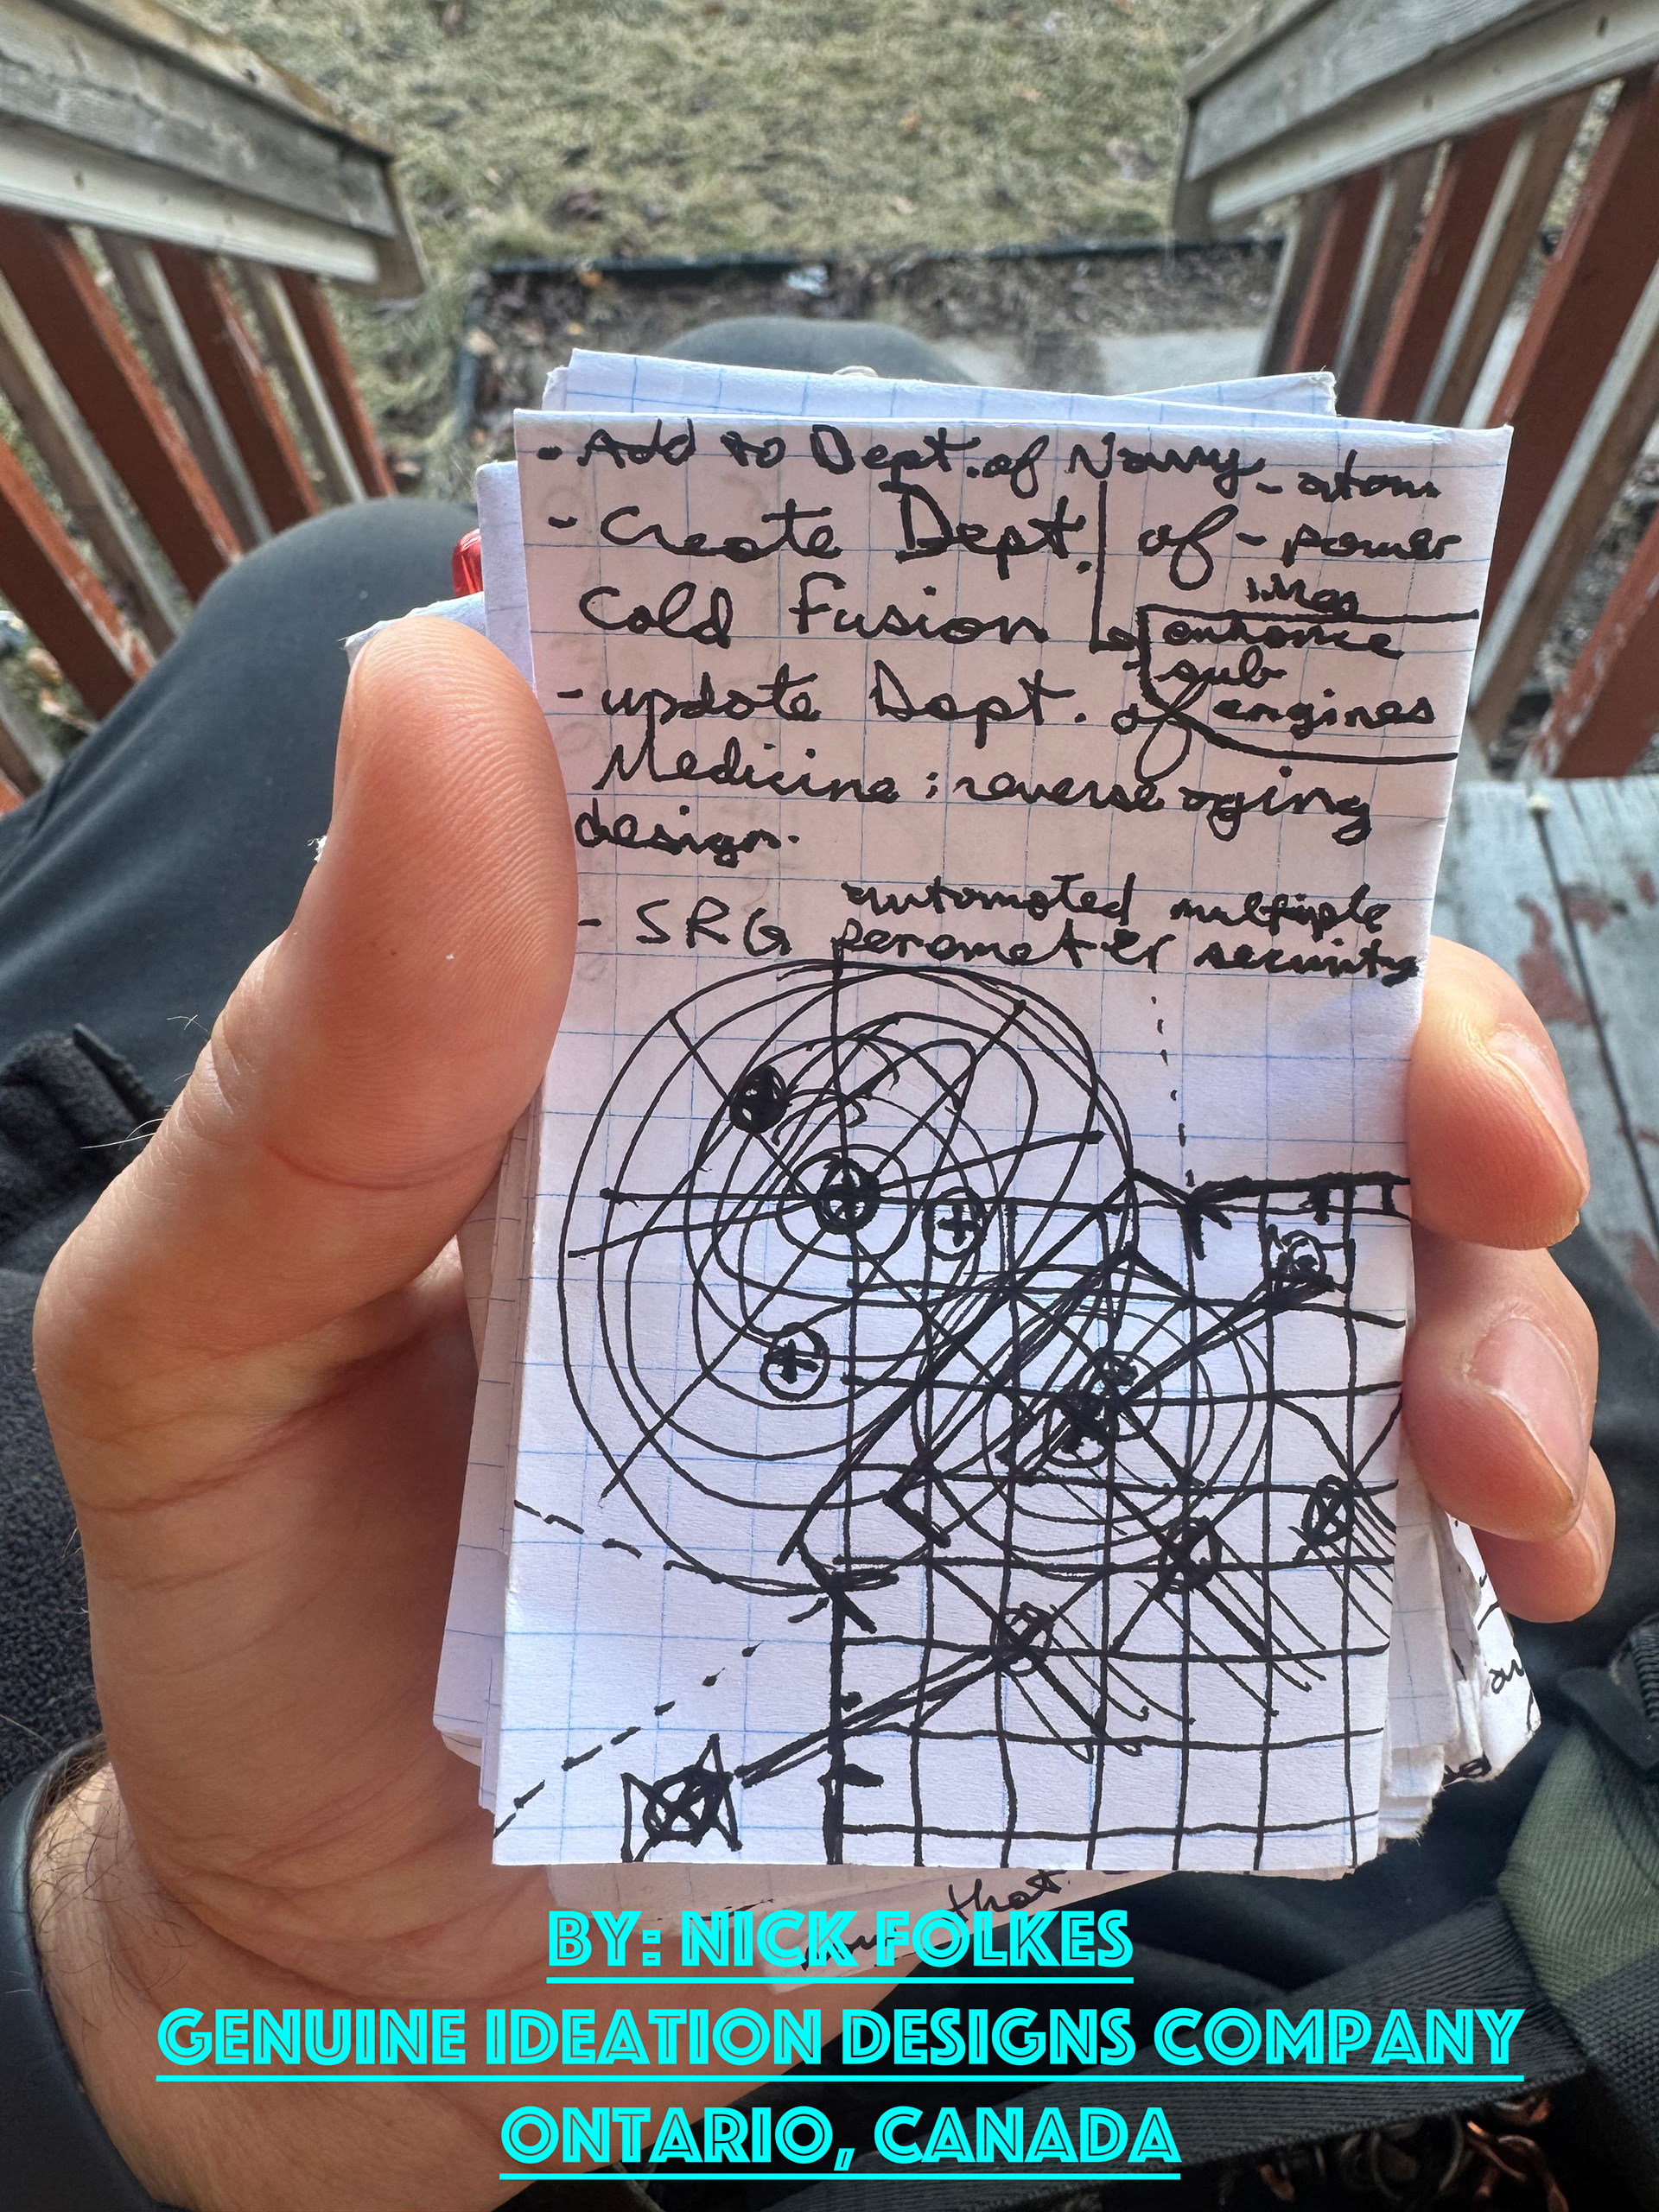 - Add to Dept. of Navy - atom
- Create Dept. of - power
Cold Fusion
enhance
sub
engines
- update Dept. of
Medicine : reverse aging
design.
- SRG automated multiple
perometer security
that
BY: NICK FOLKES
GENUINE IDEATION DESIGNS COMPANY
ONTARIO, CANADA